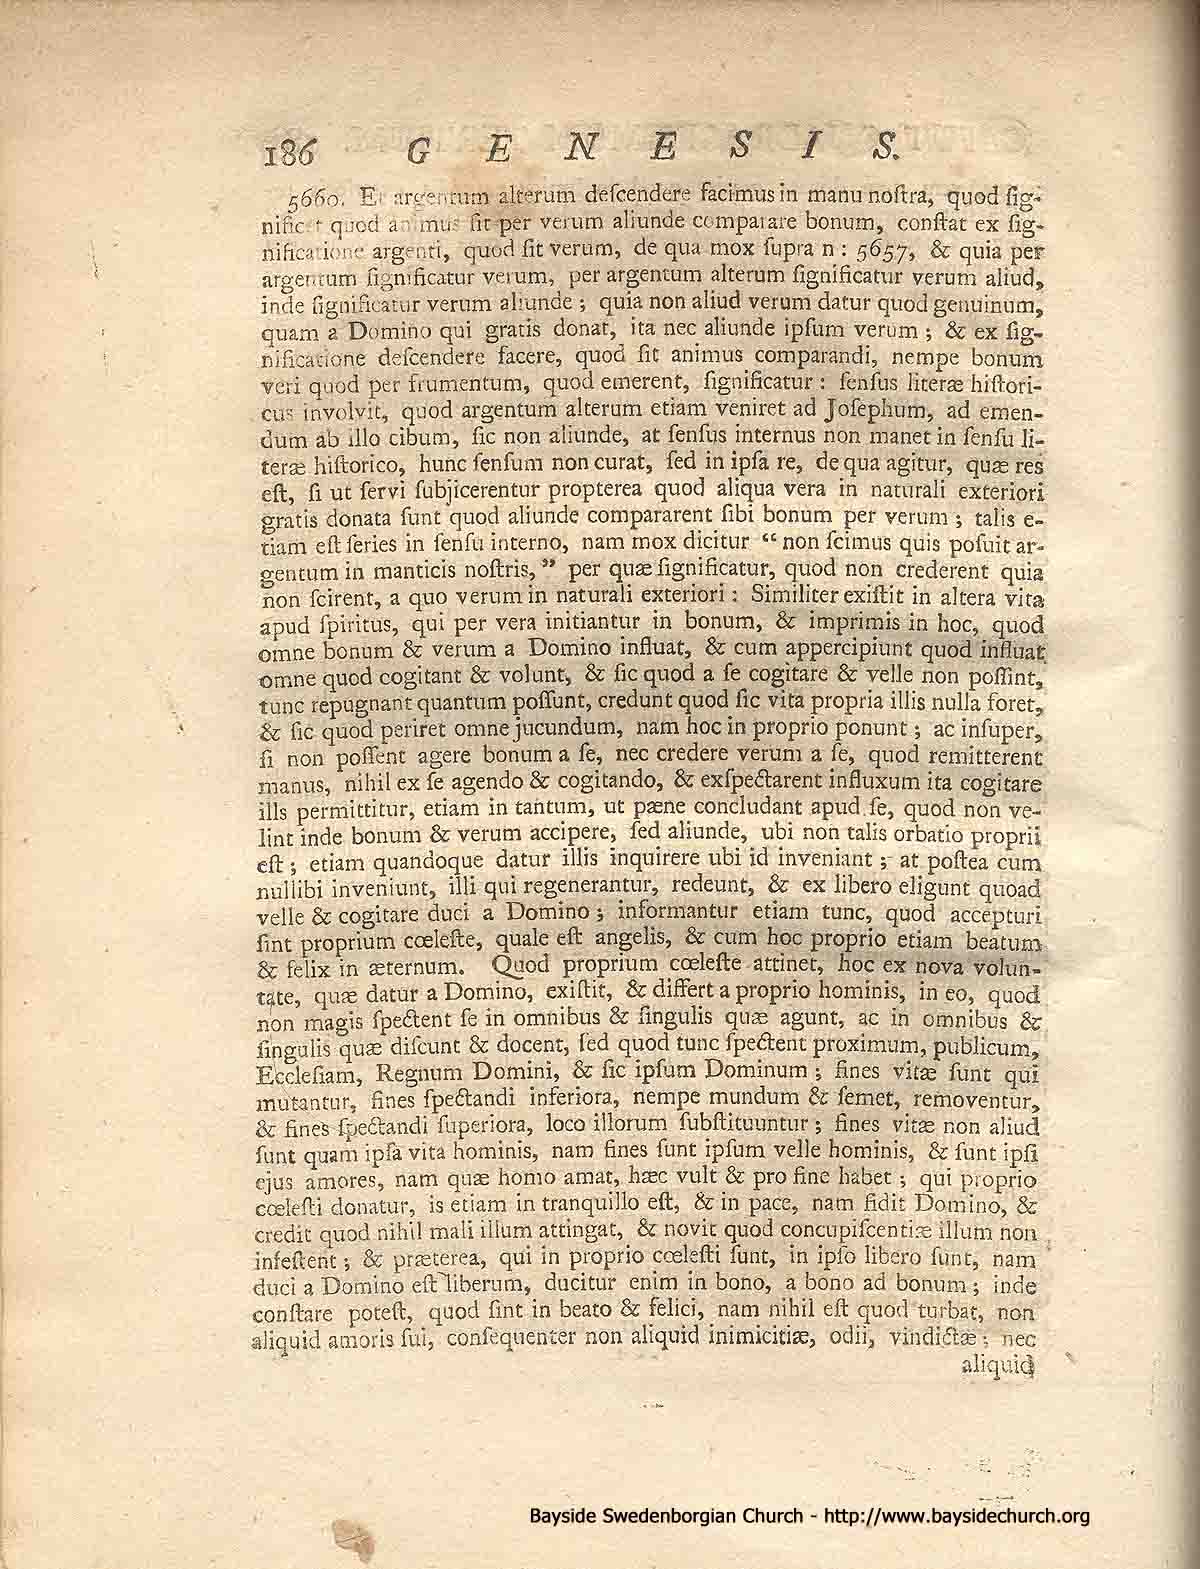 186 G E N E S I S.
5660. Et argentum alterum deſcendere facimus in manu noſtra, quod ſig-
nificet quod animus ſit per verum aliunde comparare bonum, conſtat ex ſig-
nificatione argenti, quod ſit verum, de qua mox ſupra n : 5657, & quia per
argentum ſignificatur verum, per argentum alterum ſignificatur verum aliud,
inde ſignificatur verum aliunde ; quia non aliud verum datur quod genuinum,
quam a Domino qui gratis donat, ita nec aliunde ipſum verum ; & ex ſig-
nificatione deſcendere facere, quod ſit animus comparandi, nempe bonum
veri quod per frumentum, quod emerent, ſignificatur : ſenſus literæ hiſtori-
cus involvit, quod argentum alterum etiam veniret ad Joſephum, ad emen-
dum ab illo cibum, ſic non aliunde, at ſenſus internus non manet in ſenſu li-
teræ hiſtorico, hunc ſenſum non curat, ſed in ipſa re, de qua agitur, quæ res
eſt, ſi ut ſervi ſubjicerentur propterea quod aliqua vera in naturali exteriori
gratis donata ſunt quod aliunde compararent ſibi bonum per verum ; talis e-
tiam eſt ſeries in ſenſu interno, nam mox dicitur “ non ſcimus quis poſuit ar-
gentum in manticis noſtris, ” per quæ ſignificatur, quod non crederent quia
non ſcirent, a quo verum in naturali exteriori : Similiter exiſtit in altera vita
apud ſpiritus, qui per vera initiantur in bonum, & imprimis in hoc, quod
omne bonum & verum a Domino influat, & cum appercipiunt quod influat
omne quod cogitant & volunt, & ſic quod a ſe cogitare & velle non poſſint,
tunc repugnant quantum poſſunt, credunt quod ſic vita propria illis nulla foret,
& ſic quod periret omne jucundum, nam hoc in proprio ponunt ; ac inſuper,
ſi non poſſent agere bonum a ſe, nec credere verum a ſe, quod remitterent
manus, nihil ex ſe agendo & cogitando, & exſpectarent influxum ita cogitare
ills permittitur, etiam in tantum, ut pæne concludant apud ſe, quod non ve-
lint inde bonum & verum accipere, ſed aliunde, ubi non talis orbatio proprii
eſt ; etiam quandoque datur illis inquirere ubi id inveniant ; at poſtea cum
nullibi inveniunt, illi qui regenerantur, redeunt, & ex libero eligunt quoad
velle & cogitare duci a Domino ; informantur etiam tunc, quod accepturi
ſint proprium cœleſte, quale eſt angelis, & cum hoc proprio etiam beatum
& felix in æternum. Quod proprium cœleſte attinet, hoc ex nova volun-
tate, quæ datur a Domino, exiſtit, & differt a proprio hominis, in eo, quod
non magis ſpectent ſe in omnibus & ſingulis quæ agunt, ac in omnibus &
ſingulis quæ diſcunt & docent, ſed quod tunc ſpectent proximum, publicum,
Eccleſiam, Regnum Domini, & ſic ipſum Dominum ; fines vitæ ſunt qui
mutantur, fines ſpectandi inferiora, nempe mundum & ſemet, removentur,
& fines ſpectandi ſuperiora, loco illorum ſubſtituuntur ; fines vitæ non aliud
ſunt quam ipſa vita hominis, nam fines ſunt ipſum velle hominis, & ſunt ipſi
ejus amores, nam quæ homo amat, hæc vult & pro fine habet ; qui proprio
cœleſti donatur, is etiam in tranquillo eſt, & in pace, nam fidit Domino, &
credit quod nihil mali illum attingat, & novit quod concupiſcentiæ illum non
infeſtent ; & præterea, qui in proprio cœleſti ſunt, in ipſo libero ſunt, nam
duci a Domino eſt liberum, ducitur enim in bono, a bono ad bonum ; inde
conſtare poteſt, quod ſint in beato & felici, nam nihil eſt quod turbat, non
aliquid amoris ſui, conſequenter non aliquid inimicitiæ, odii, vindictæ ; nec
aliquid
Bayside Swedenborgian Church - http://www.baysidechurch.org